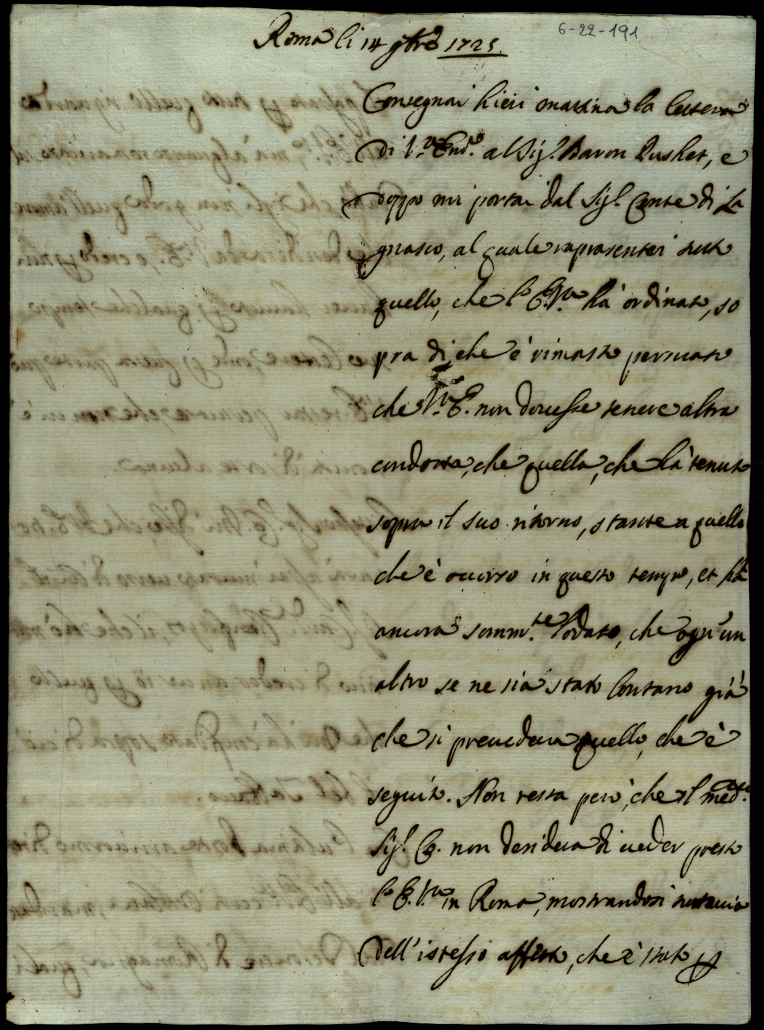 6-22-191
Roma li 14 9bre 1725.
Consegnai hieri mattina la lettera
di V. Em. al Sig.r Baron Pusket, e
doppo mi portai dal Sig.r Conte di La
gnasco, al quale rapresentai tutto
quello, che l'E. V.ra hà ordinato, so
pra di che è rimasto persuaso
che V.ra E. non dovesse tenere altra
condotta, che quella, che hà tenuto
sopra il suo ritorno, stante a quello
che è occorso in questo tempo, et hà
ancora somm.te lodato, che ogn'un
altro se ne sia stato lontano già
che si prevedeva quello, che è
seguito. Non resta però, che il med.o
Sig.r Co. non desidera di veder presto
l'E. V.ra in Roma, mostrandosi tuttavia
dell'istesso affetto, che è stato